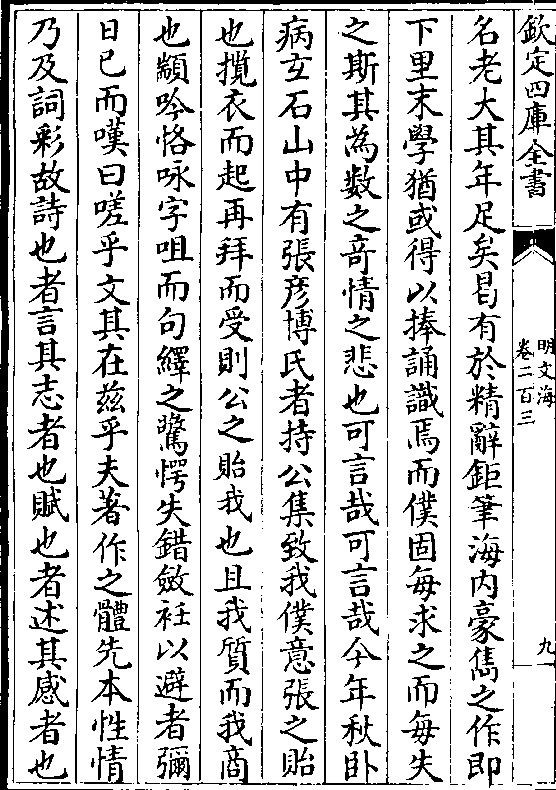 欽定四庫全書
明文海
卷二百三
九
名老大其年足矣曷有於精辭鉅筆海内豪雋之作即
下里末學猶或得以捧誦識焉而僕固每求之而每失
之斯其為數之竒情之悲也可言哉可言哉今年秋卧
病玄石山中有張彦博氏者持公集致我僕意張之貽
也攬衣而起再拜而受則公之貽我也且我質而我商
也顓吟恪咏字咀而句繹之驚愕失錯斂衽以避者彌
日已而嘆曰嗟乎文其在兹乎夫著作之體先本性情
乃及詞彩故詩也者言其志者也賦也者述其感者也